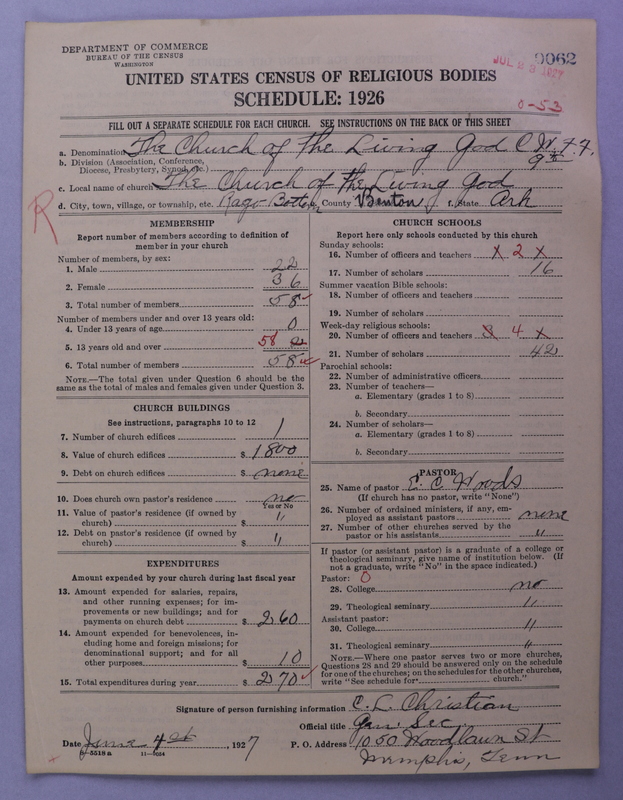 DEPARTMENT OF COMMERCE
BUREAU OF THE CENSUS
WASHINGTON
JUL 23 1927
0062
UNITED STATES CENSUS OF RELIGIOUS BODIES
SCHEDULE: 1926
0-53
FILL OUT A SEPARATE SCHEDULE FOR EACH CHURCH. SEE INSTRUCTIONS ON THE BACK OF THIS SHEET
a. Denomination The Church of the Living God C.W.F.F.
b. Division (Association, Conference, Diocese, Presbytery, Synod, etc.) 9th
c. Local name of church The Church of the Living God
d. City, town, village, or township, etc. County Benton State Ark
R
MEMBERSHIP
Report number of members according to definition of
member in your church
Number of members, by sex:
1. Male 22
2. Female 36
3. Total number of members 58
Number of members under and over 13 years old:
4. Under 13 years of age 0
5. 13 years old and over 58
6. Total number of members 58
NOTE.—The total given under Question 6 should be
same as the total of males and females given under Question 3.
CHURCH BUILDINGS
See instructions, paragraphs 10 to 12
7. Number of church edifices 1
8. Value of church edifices $ 1800
9. Debt on church edifices $ none
10. Does church own pastor's residence no
Yes or No
11. Value of pastor's residence (if owned by
church) $ "
12. Debt on pastor's residence (if owned by
church) $ "
EXPENDITURES
Amount expended by your church during last fiscal year
13. Amount expended for salaries, repairs,
and other running expenses; for im-
provements or new buildings; and for
payments on church debt $ 260
14. Amount expended for benevolences, in-
cluding home and foreign missions; for
denominational support; and for all
other purposes $ 10
15. Total expenditures during year $ 270
CHURCH SCHOOLS
Report here only schools conducted by this church
Sunday schools:
16. Number of officers and teachers X 2 X
17. Number of scholars 16
Summer vacation Bible schools:
18. Number of officers and teachers
19. Number of scholars
Week-day religious schools:
20. Number of officers and teachers 4 X
21. Number of scholars 42
Parochial schools:
22. Number of administrative officers
23. Number of teachers—
a. Elementary (grades 1 to 8)
b. Secondary
24. Number of scholars—
a. Elementary (grades 1 to 8)
b. Secondary
PASTOR
25. Name of pastor E. C. Woods
(If church has no pastor, write "None")
26. Number of ordained ministers, if any, em-
ployed as assistant pastors none
27. Number of other churches served by the
pastor or his assistants "
If pastor (or assistant pastor) is a graduate of a college or
theological seminary, give name of institution below. (If
not a graduate, write "No" in the space indicated.)
Pastor: 0
28. College no
29. Theological seminary "
Assistant pastor:
30. College "
31. Theological seminary "
NOTE.—Where one pastor serves two or more churches,
Questions 28 and 29 should be answered only on the schedule
for one of the churches; on the schedules for the other churches,
write "See schedule for church."
Signature of person furnishing information C. L. Christian
Official title Gen. Sec.
Date June 4st, 1927 P. O. Address 1050 Woodlawn St
8-5518 a 11-9034 Memphis, Tenn